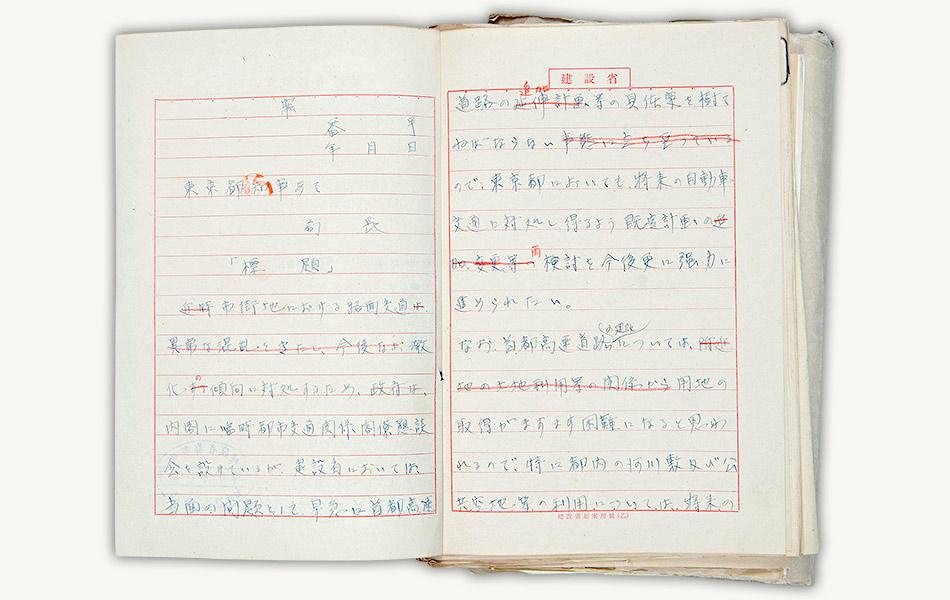 案
番 号
年 月 日
東京都知事あて
局 長
「標 題」
近時市街地における路面交通は、
異常な混乱をきたし、今後なお激
化の傾向に対処するため、政府は、
内閣に臨時都市交通関係閣僚懇談
会を設けているが、建設省においては、
当面の問題として、早急に首都高速
建設省
追加
道路の延伸計画等の具体案を樹て
ねばならない事態に立ち至っている
ので、東京都においても、将来の自動車
交通に対処し得るよう既定計画の
変更等の再検討を今後更に強力に
進められたい。
の建設
なお、首都高速道路については、附近
地の土地利用等の関係から用地の
取得がますます困難になると思わ
れるので、特に都内の河川敷及び公
共空地等の利用については、将来の
建設省起案用紙(乙)